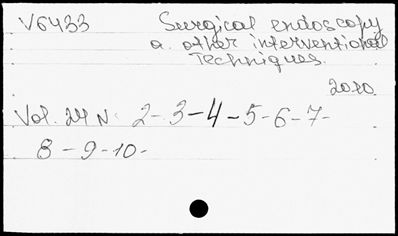 V6433
Surgical endoscopy
a. other interventional
Techniques.
2010.
Vol. 24 N. 2-3-4-5-6-7-
8-9-10-